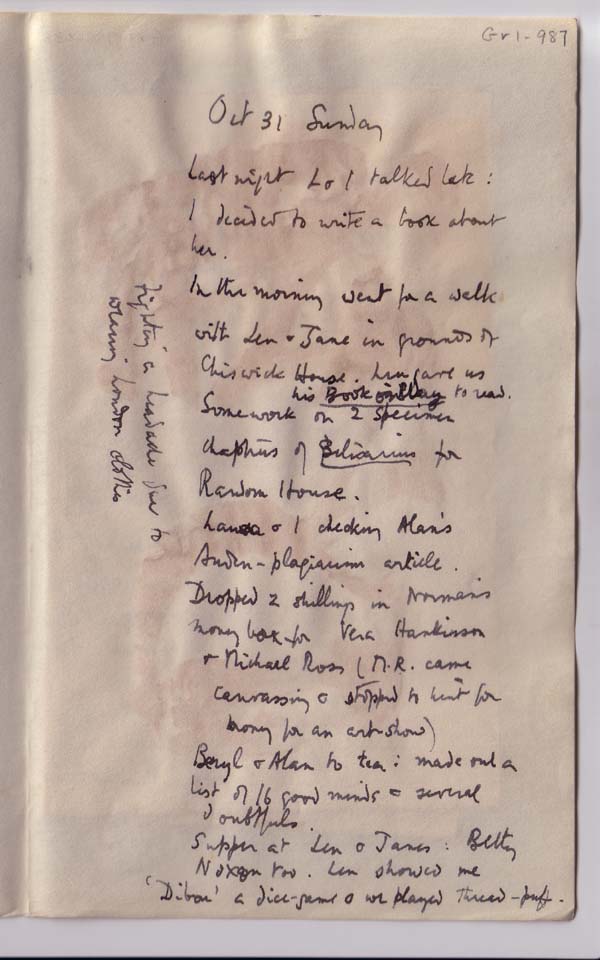 Gr1-987
Oct 31 Sunday
Last night L & I talked late:
I decided to write a book about
her.
In the morning went for a walk
with Len & Jane in grounds of
Chiswick House. Len gave us
his Book to read.
Some work on 2 specimen
chapters of Belisarius for
Random House.
Laura & I checking Alan's
Auden-plagiarism article.
Dropped 2 shillings in Norman's
money box for Vera Hankinson
& Michael Ross (M.R. came
canvassing & stopped to hint for
money for an art-show)
Beryl & Alan to tea: made out a
list of 16 good minds & several
doubtfuls.
Supper at Len & Janes: Betty
Nixon too. Len showed me
'Dibou' a dice-game & we played thread-puff.
Fighting a headache due to
wearing London clothes